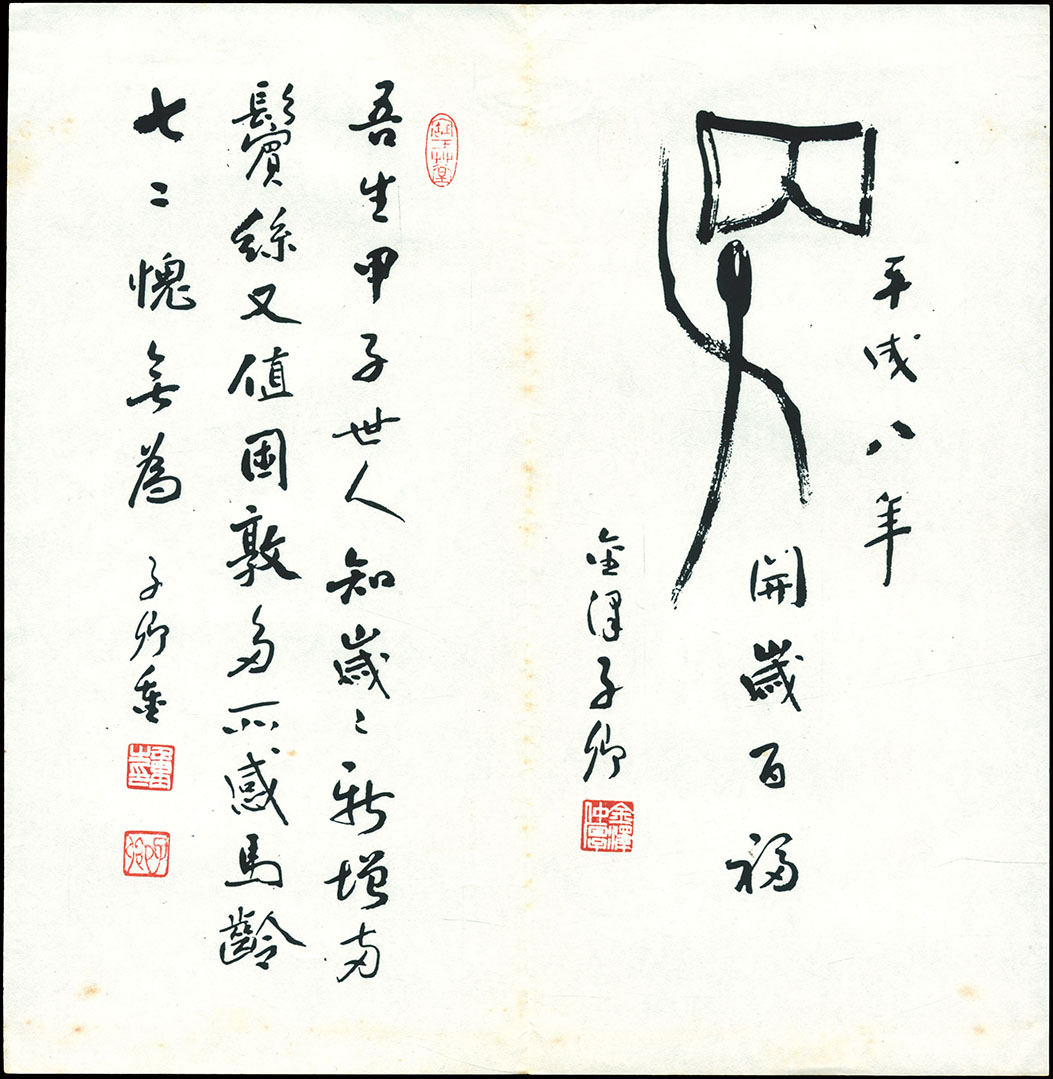 平成八年
開歳百福
金澤子卿
吾生甲子世人知歳〻新增両
鬢絲又値困敦多所感馬齡
七二愧無為 子卿